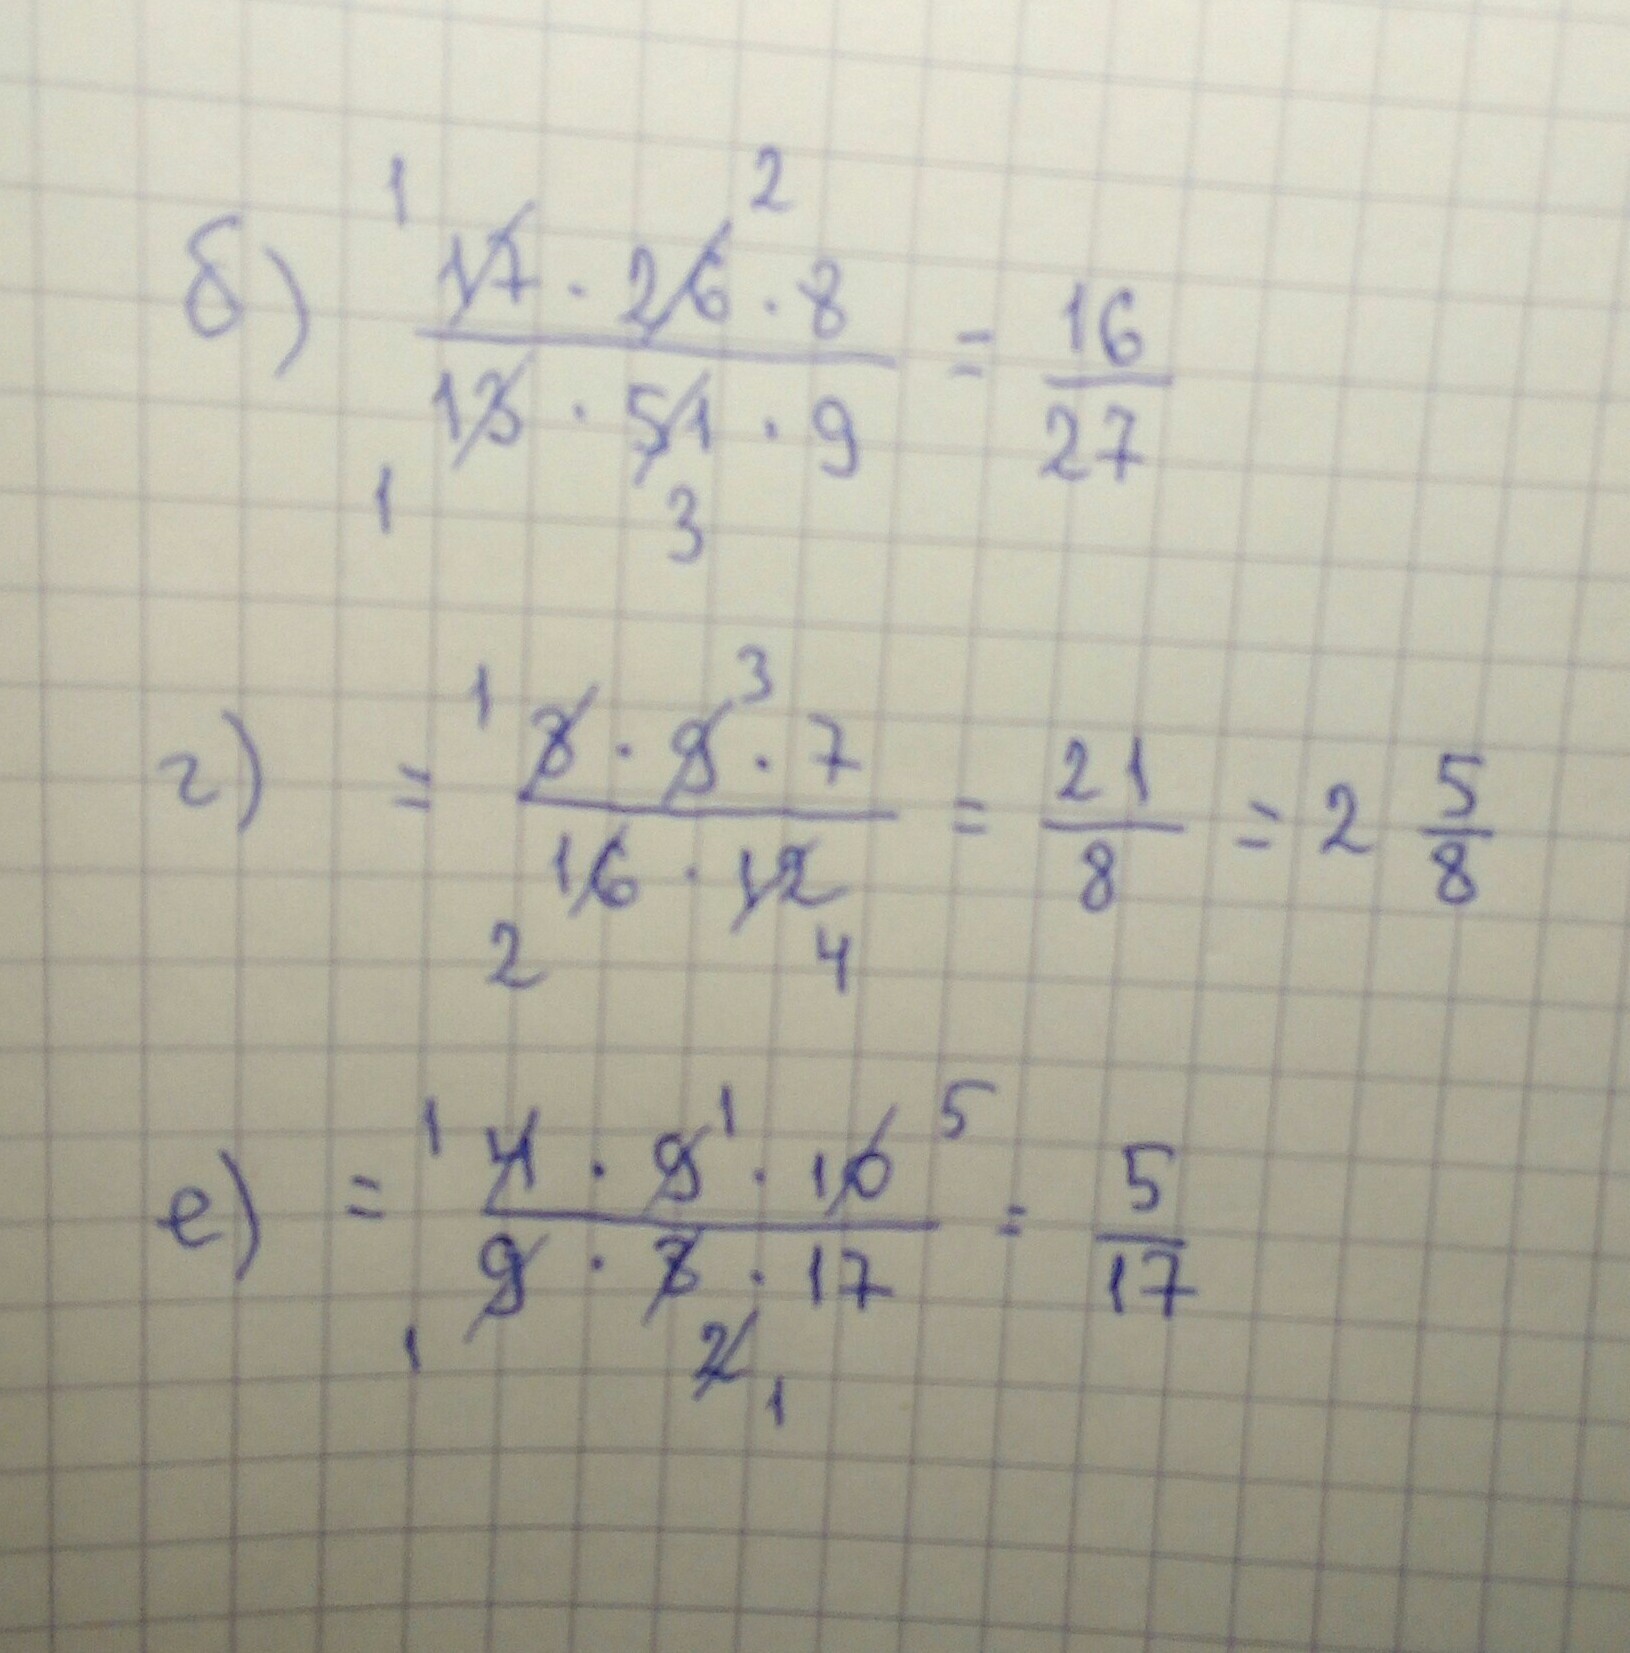 1 2
б) 17 · 26 · 8 / 13 · 51 · 9 = 16/27
1 3
1 3
г) = 8 · 9 · 7 / 16 · 12 = 21/8 = 2 5/8
2 4
1 1 5
е) = 4 · 9 · 10 / 9 · 8 · 17 = 5/17
1 2 1